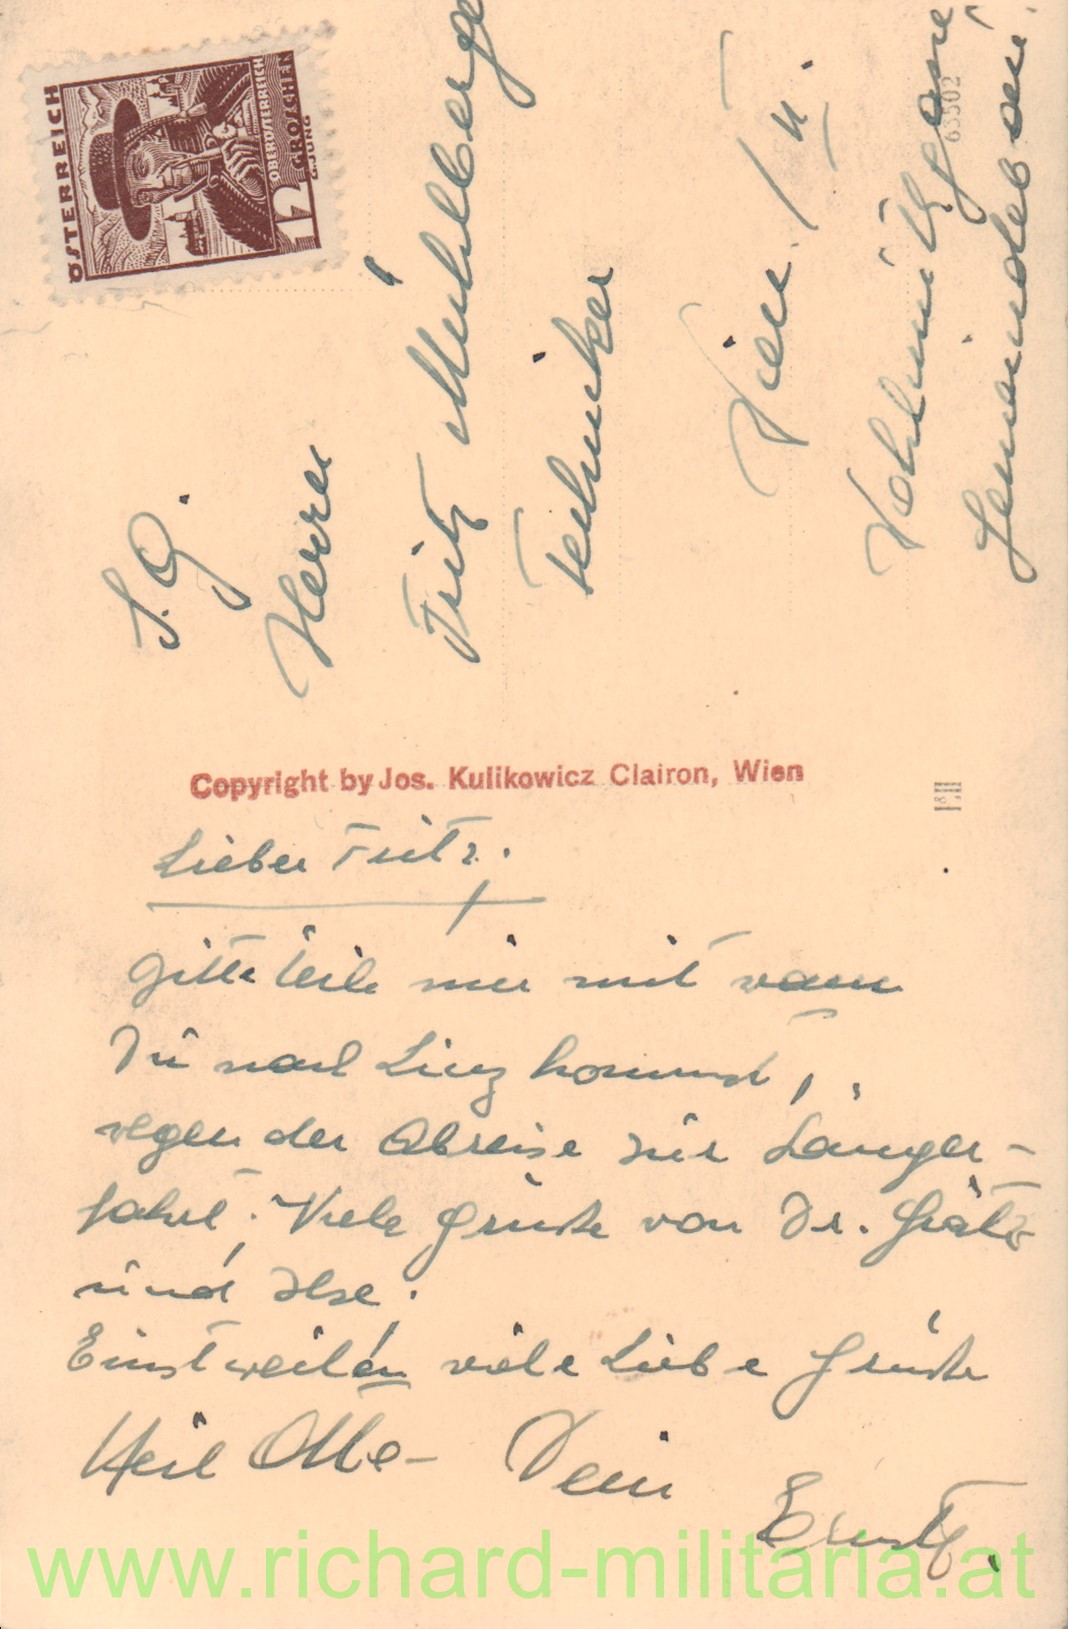 ÖSTERREICH
OBERÖSTERREICH
12 GROSCHEN
S. G.
Herrn
Fritz Mühlberge
Techniker
Wien
63502
Copyright by Jos. Kulikowicz Clairon, Wien
Lieber Fritz.
Bitte teile mir mit wann
Du nach Linz kommst,
wegen der Abreise zur Sänger-
fahrt. Viele Grüße von Dr.
und Ilse.
Einstweilen viele Liebe Grüße
Heil Dein
Ernst.
www.richard-militaria.at